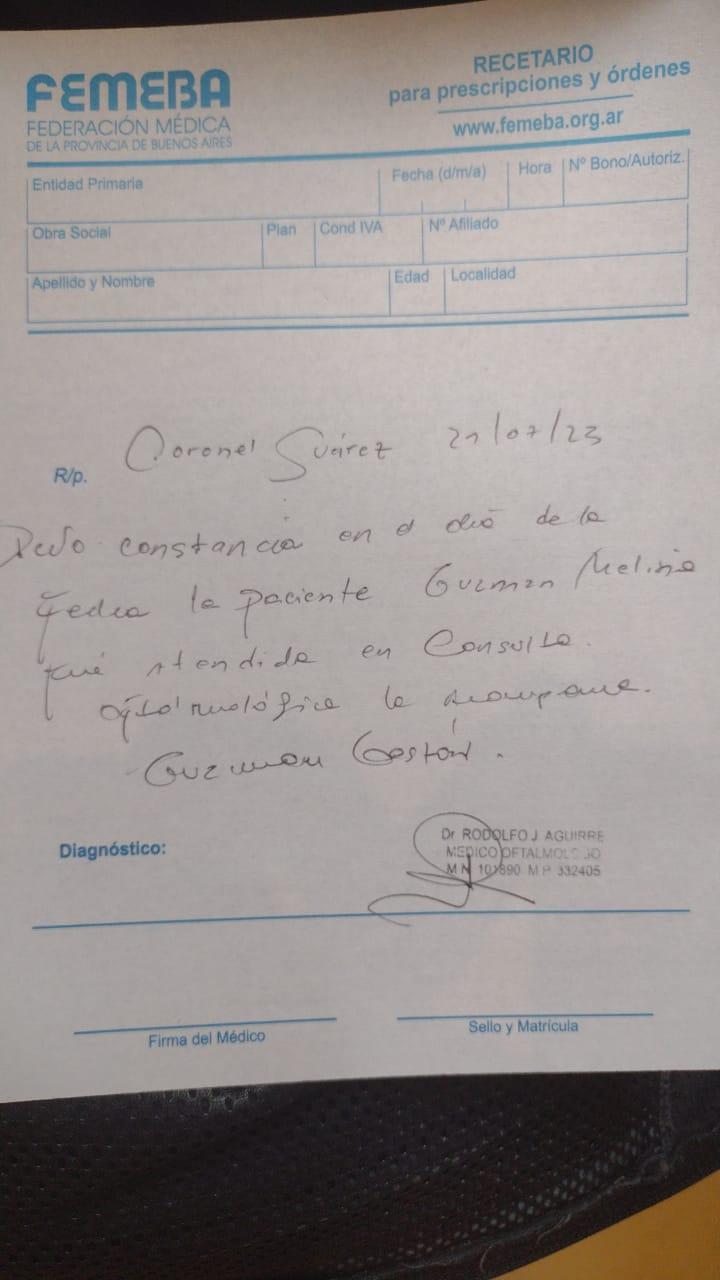 FEMEBA
FEDERACIÓN MÉDICA
DE LA PROVINCIA DE BUENOS AIRES
RECETARIO
para prescripciones y órdenes
www.femeba.org.ar
Entidad Primaria Fecha (d/m/a) Hora Nº Bono/Autoriz.
Obra Social Plan Cond IVA Nº Afiliado
Apellido y Nombre Edad Localidad
R/p. Coronel Suárez 21/07/23
Dejo constancia en el día de la
fecha la paciente Guzman Melisa
fué atendida en Consulta
oftalmológica la acompaña.
Guzman Gastón.
Diagnóstico:
Dr RODOLFO J AGUIRRE
MEDICO OFTALMOLOGO
M N 101890 M P 332405
Firma del Médico
Sello y Matrícula